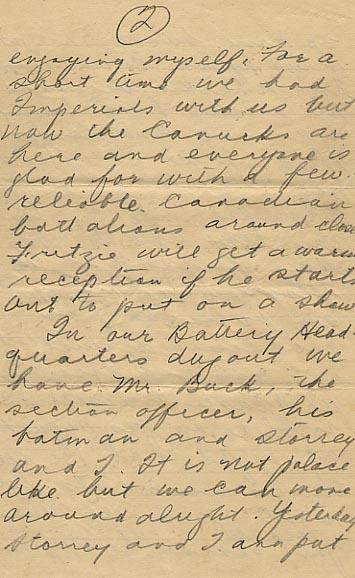 2
enjoying myself. For a
short time we had
Imperials with us but
now the Canucks are
here and everyone is
glad for with a few
reliable Canadian
battalions around close
Fritzie will get a warm
reception if he starts
out to put on a show
In our Battery Head-
quarters dugout we
have Mr. Buck, the
section officer, his
batman and Storrey
and I. It is not palace
like but we can move
around alright. Yesterday
Storrey and I put